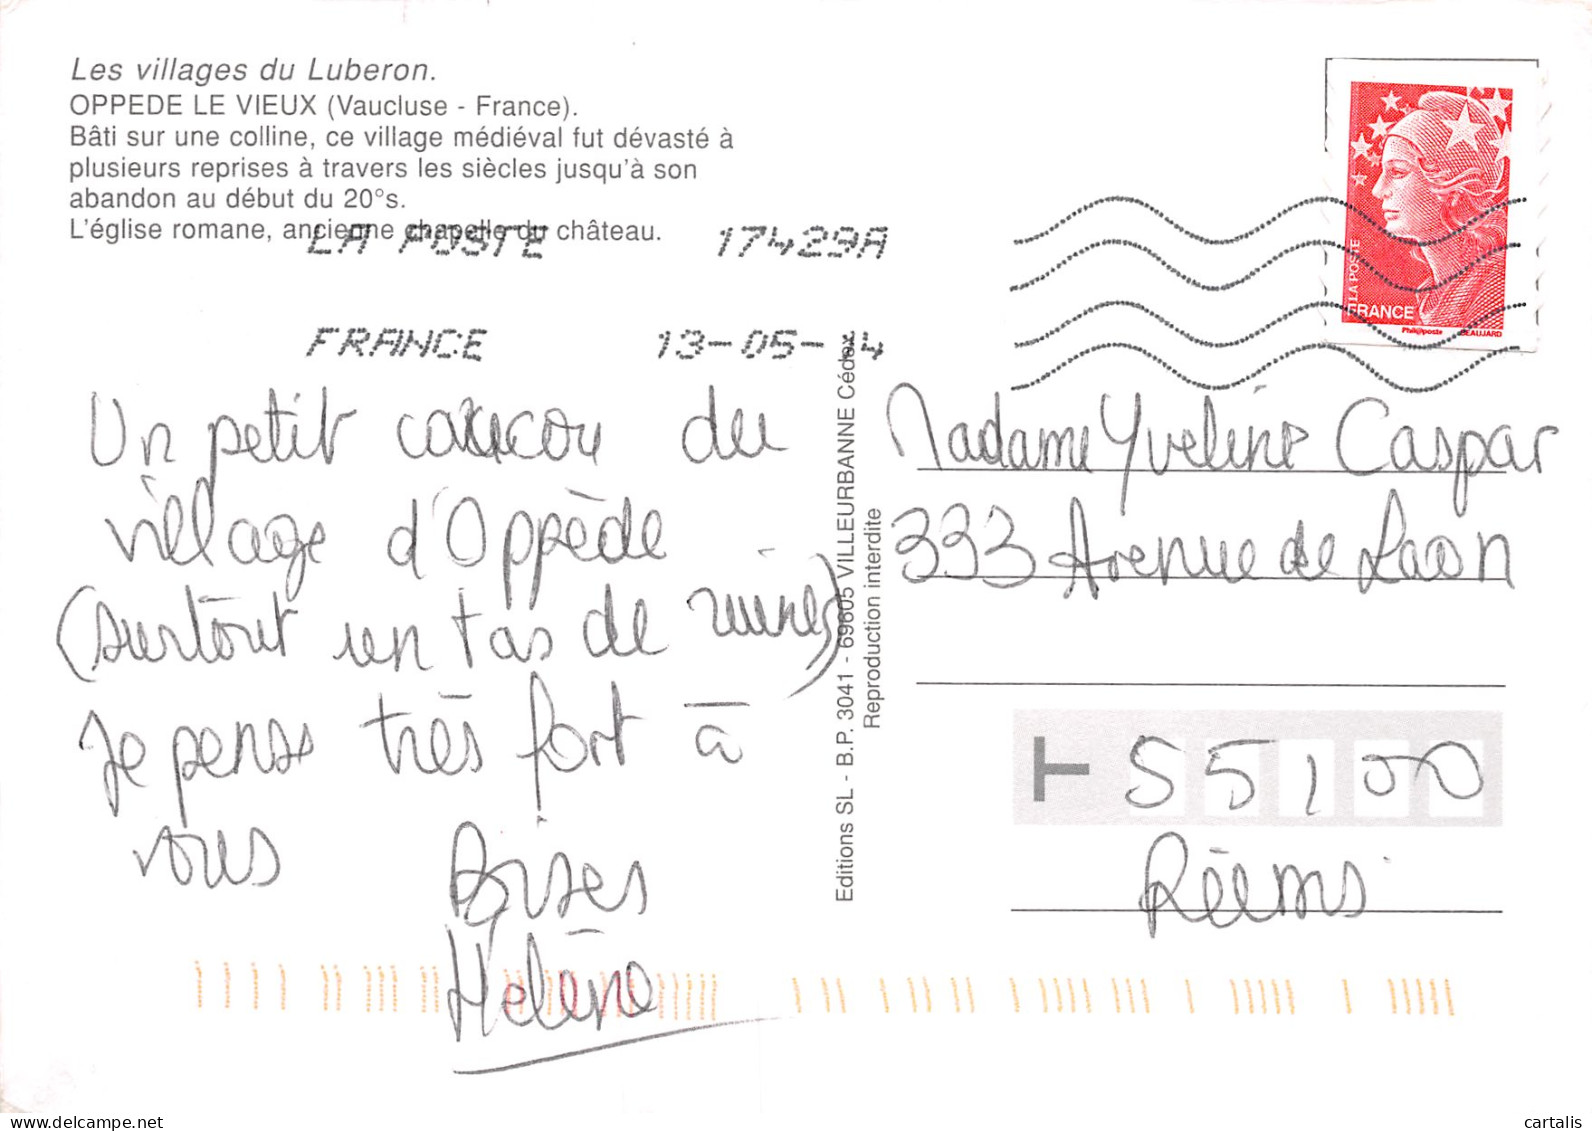 Les villages du Luberon.
OPPEDE LE VIEUX (Vaucluse - France).
Bâti sur une colline, ce village médiéval fut dévasté à
plusieurs reprises à travers les siècles jusqu'à son
abandon au début du 20°s.
L'église romane, ancienne chapelle du château.
LA POSTE 17429A
FRANCE 13-05-14
LA POSTE
FRANCE
Phil@poste BEAUJARD
Un petit coucou du
village d'Oppède
(surtout un tas de ruines)
Je pense très fort à
vous
Bises
Hélène
Editions SL - B.P. 3041 - 69605 VILLEURBANNE Cédex
Reproduction interdite
Madame Yveline Caspar
333 Avenue de Laon
55100
Reims
delcampe.net
cartalis